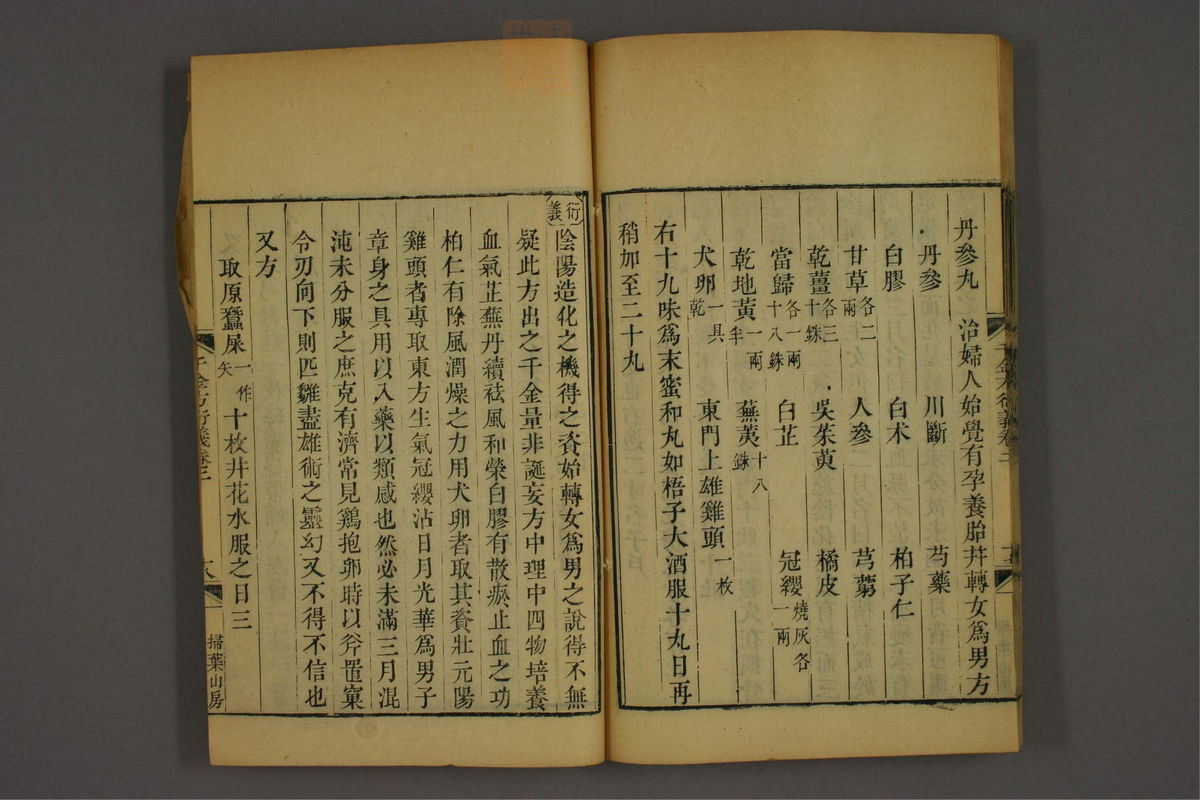 丹參丸　治婦人始覺有孕養胎幷轉女爲男方
丹參　川斷　芍藥
白膠　白术　柏子仁
甘草各二兩　人參　芎藭
乾薑各三十銖　吳茱萸　橘皮
當歸各一兩十八銖　白芷　冠纓燒灰各一兩
乾地黃一兩半　蕪荑十八銖
犬卵一具乾　東門上雄雞頭一枚
右十九味爲末蜜和丸如梧子大酒服十九日再
稍加至二十九
衍義　陰陽造化之機得之資始轉女爲男之說得不無
疑此方出之千金量非誕妄方中理中四物培養
血氣芷蕪丹續祛風和榮白膠有散瘀止血之功
柏仁有除風潤燥之力用犬卵者取其資壯元陽
雞頭者專取東方生氣冠纓沾日月光華爲男子
章身之具用以入藥以類感也然必未滿三月混
沌未分服之庶克有濟常見鷄抱卵時以斧置窠
令刃向下則匹雛盡雄術之靈幻又不得不信也
又方
取原蠶屎一作矢十枚井花水服之日三
千金方衍義卷二
掃葉山房